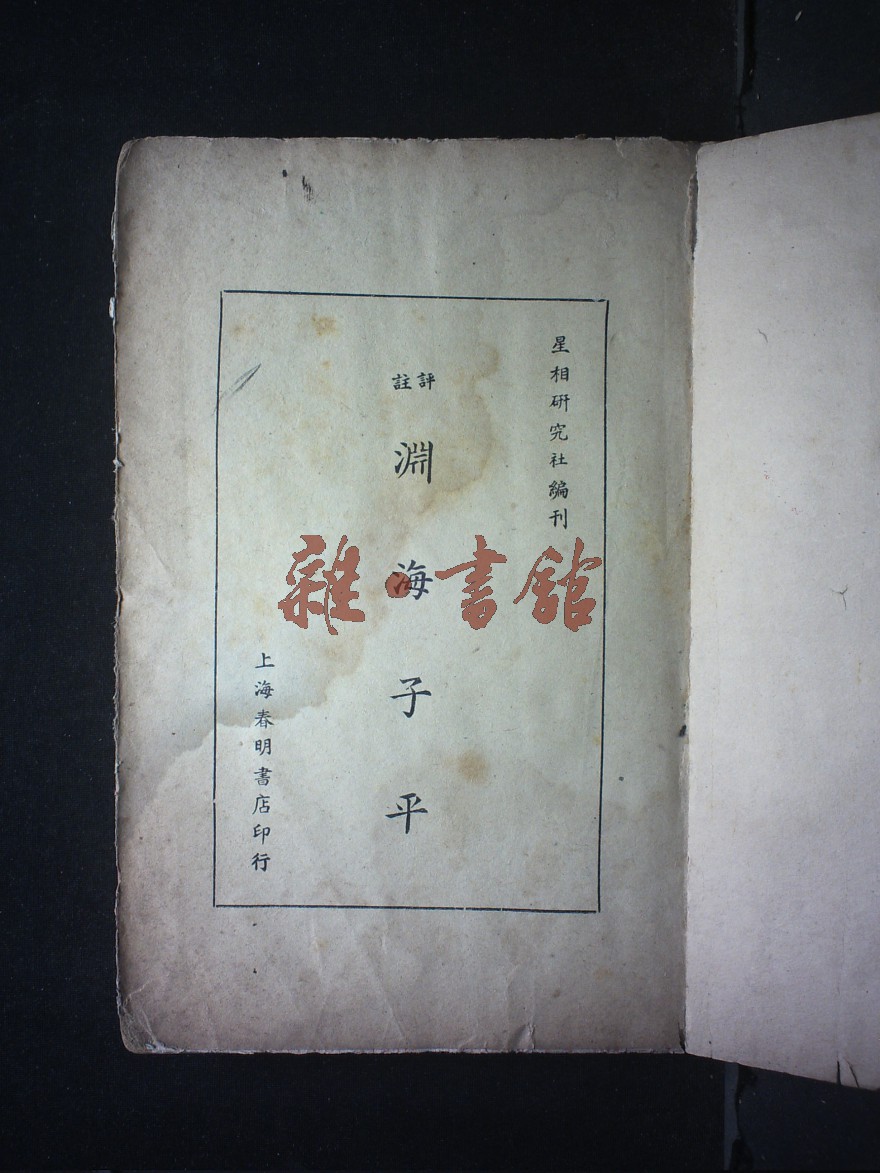 星相研究社編刊
評註
淵海子平
上海春明書店印行
雜書館